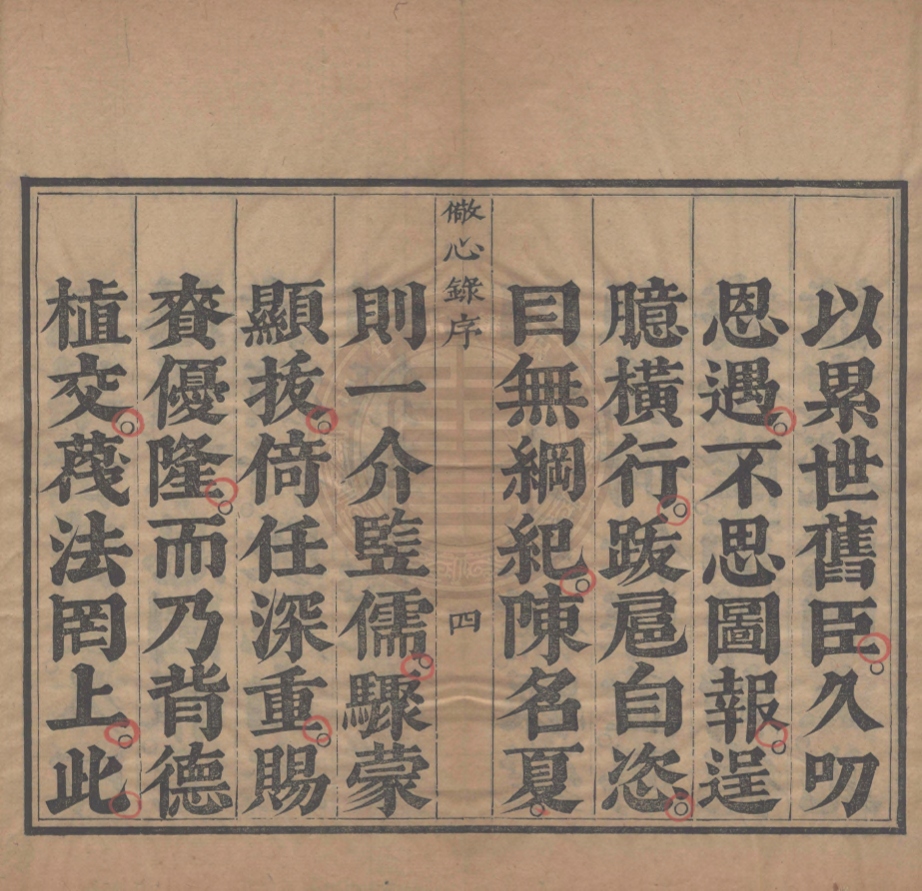 以累世舊臣。久叨
恩遇。不思圖報。逞
臆橫行。跋扈自恣。
目無綱紀。陳名夏
則一介監儒。驟蒙
顯拔。倚任深重。賜
賚優隆。而乃背德
植交。蔑法罔上。此
儆心錄序
四